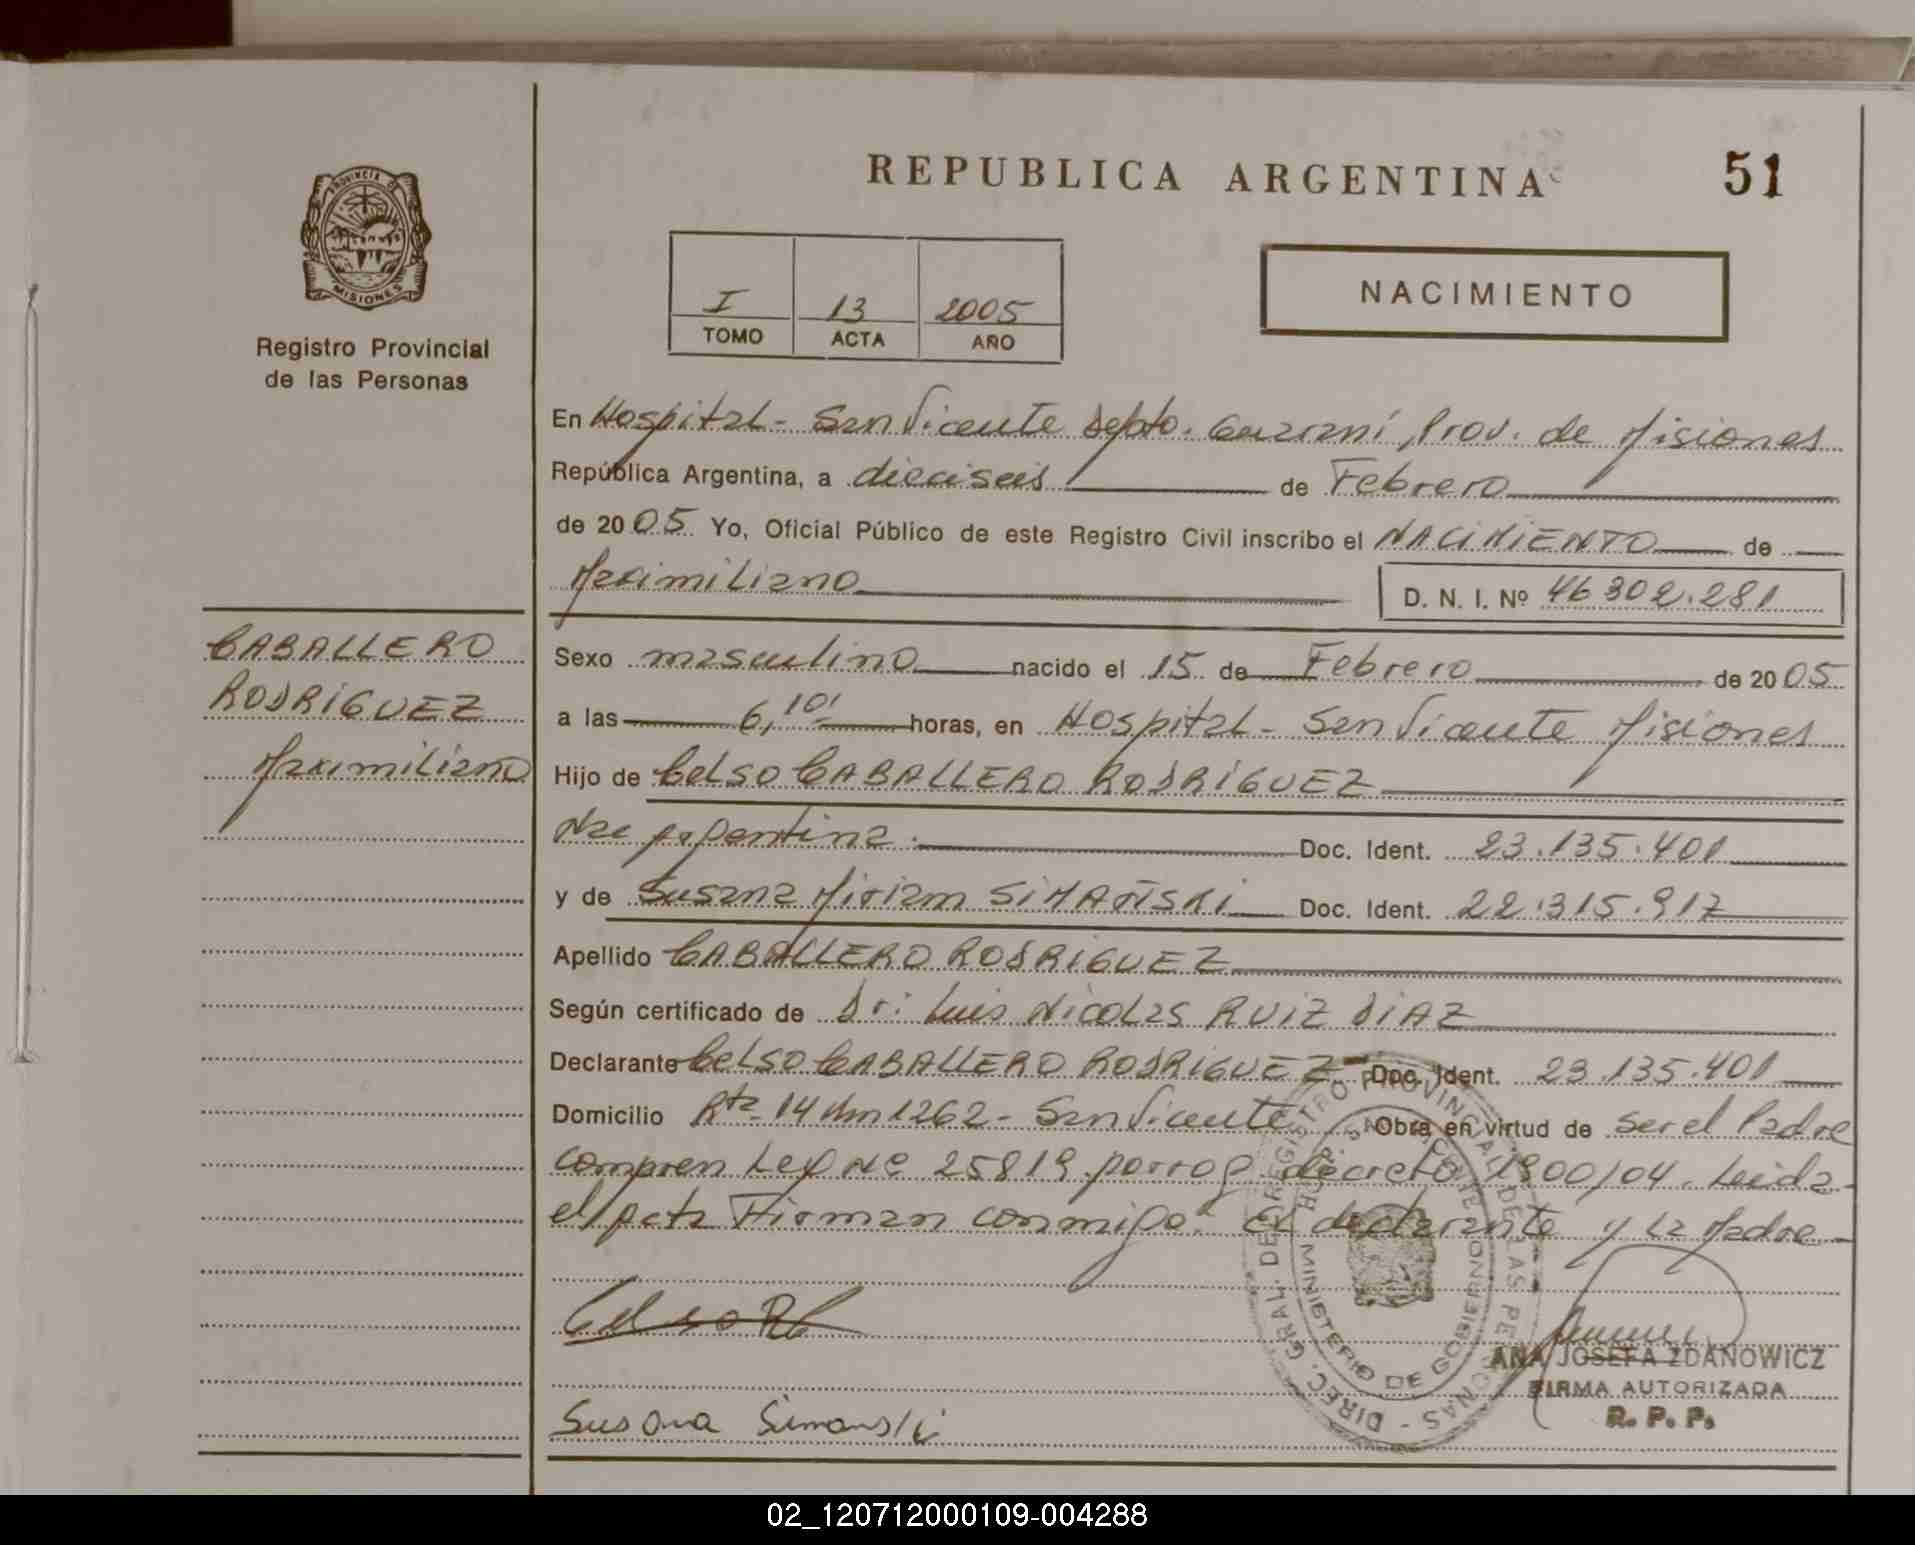 REPUBLICA ARGENTINA
51
PROVINCIA DE
MISIONES
Registro Provincial
de las Personas
I 13 2005
TOMO ACTA AÑO
NACIMIENTO
En Hospital - San Vicente Depto. Guaraní, Prov. de Misiones
República Argentina, a dieciseis de Febrero
de 2005 Yo, Oficial Público de este Registro Civil inscribo el NACIMIENTO de
Maximiliano
D. N. I. Nº 46302.281
CABALLERO
RODRIGUEZ
Maximiliano
Sexo masculino nacido el 15 de Febrero de 2005
a las 6,10' horas, en Hospital - San Vicente Misiones
Hijo de Celso CABALLERO RODRIGUEZ
Nac Argentina. Doc. Ident. 23.135.401
y de Susana Miriam SiMAÑSKi Doc. Ident. 22.315.917
Apellido CABALLERO RODRIGUEZ
Según certificado de Dr: Luis Nicolas RUIZ DIAZ
Declarante Celso CABALLERO RODRIGUEZ Doc. Ident. 23.135.401
Domicilio Rta. 14 Km 1262 - San Vicente Obra en virtud de ser el Padre
Ley Nº 25819 decreto 1900/04. Leida
el acta Firman conmigo. El declarante y La Madre
DIREC. GRAL. DE REGISTRO PROVINCIAL DE LAS PERSONAS
MINISTERIO DE GOBIERNO
Susana Simanski
ANA JOSEFA ZDANOWICZ
FIRMA AUTORIZADA
R. P. P.
02_120712000109-004288